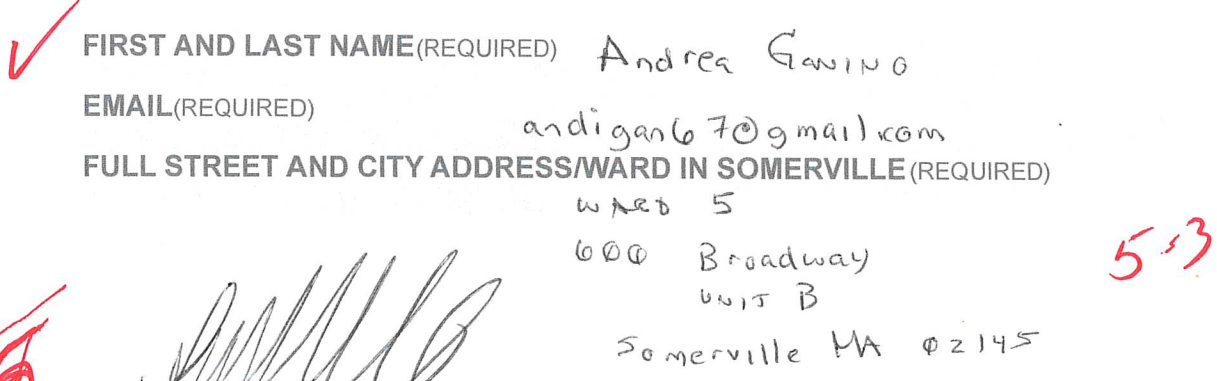 FIRST AND LAST NAME(REQUIRED) Andrea Ganino
EMAIL(REQUIRED)
andigan67@gmail.com
FULL STREET AND CITY ADDRESS/WARD IN SOMERVILLE(REQUIRED)
WARD 5
600 Broadway
5-3
UNIT B
Somerville MA 02145